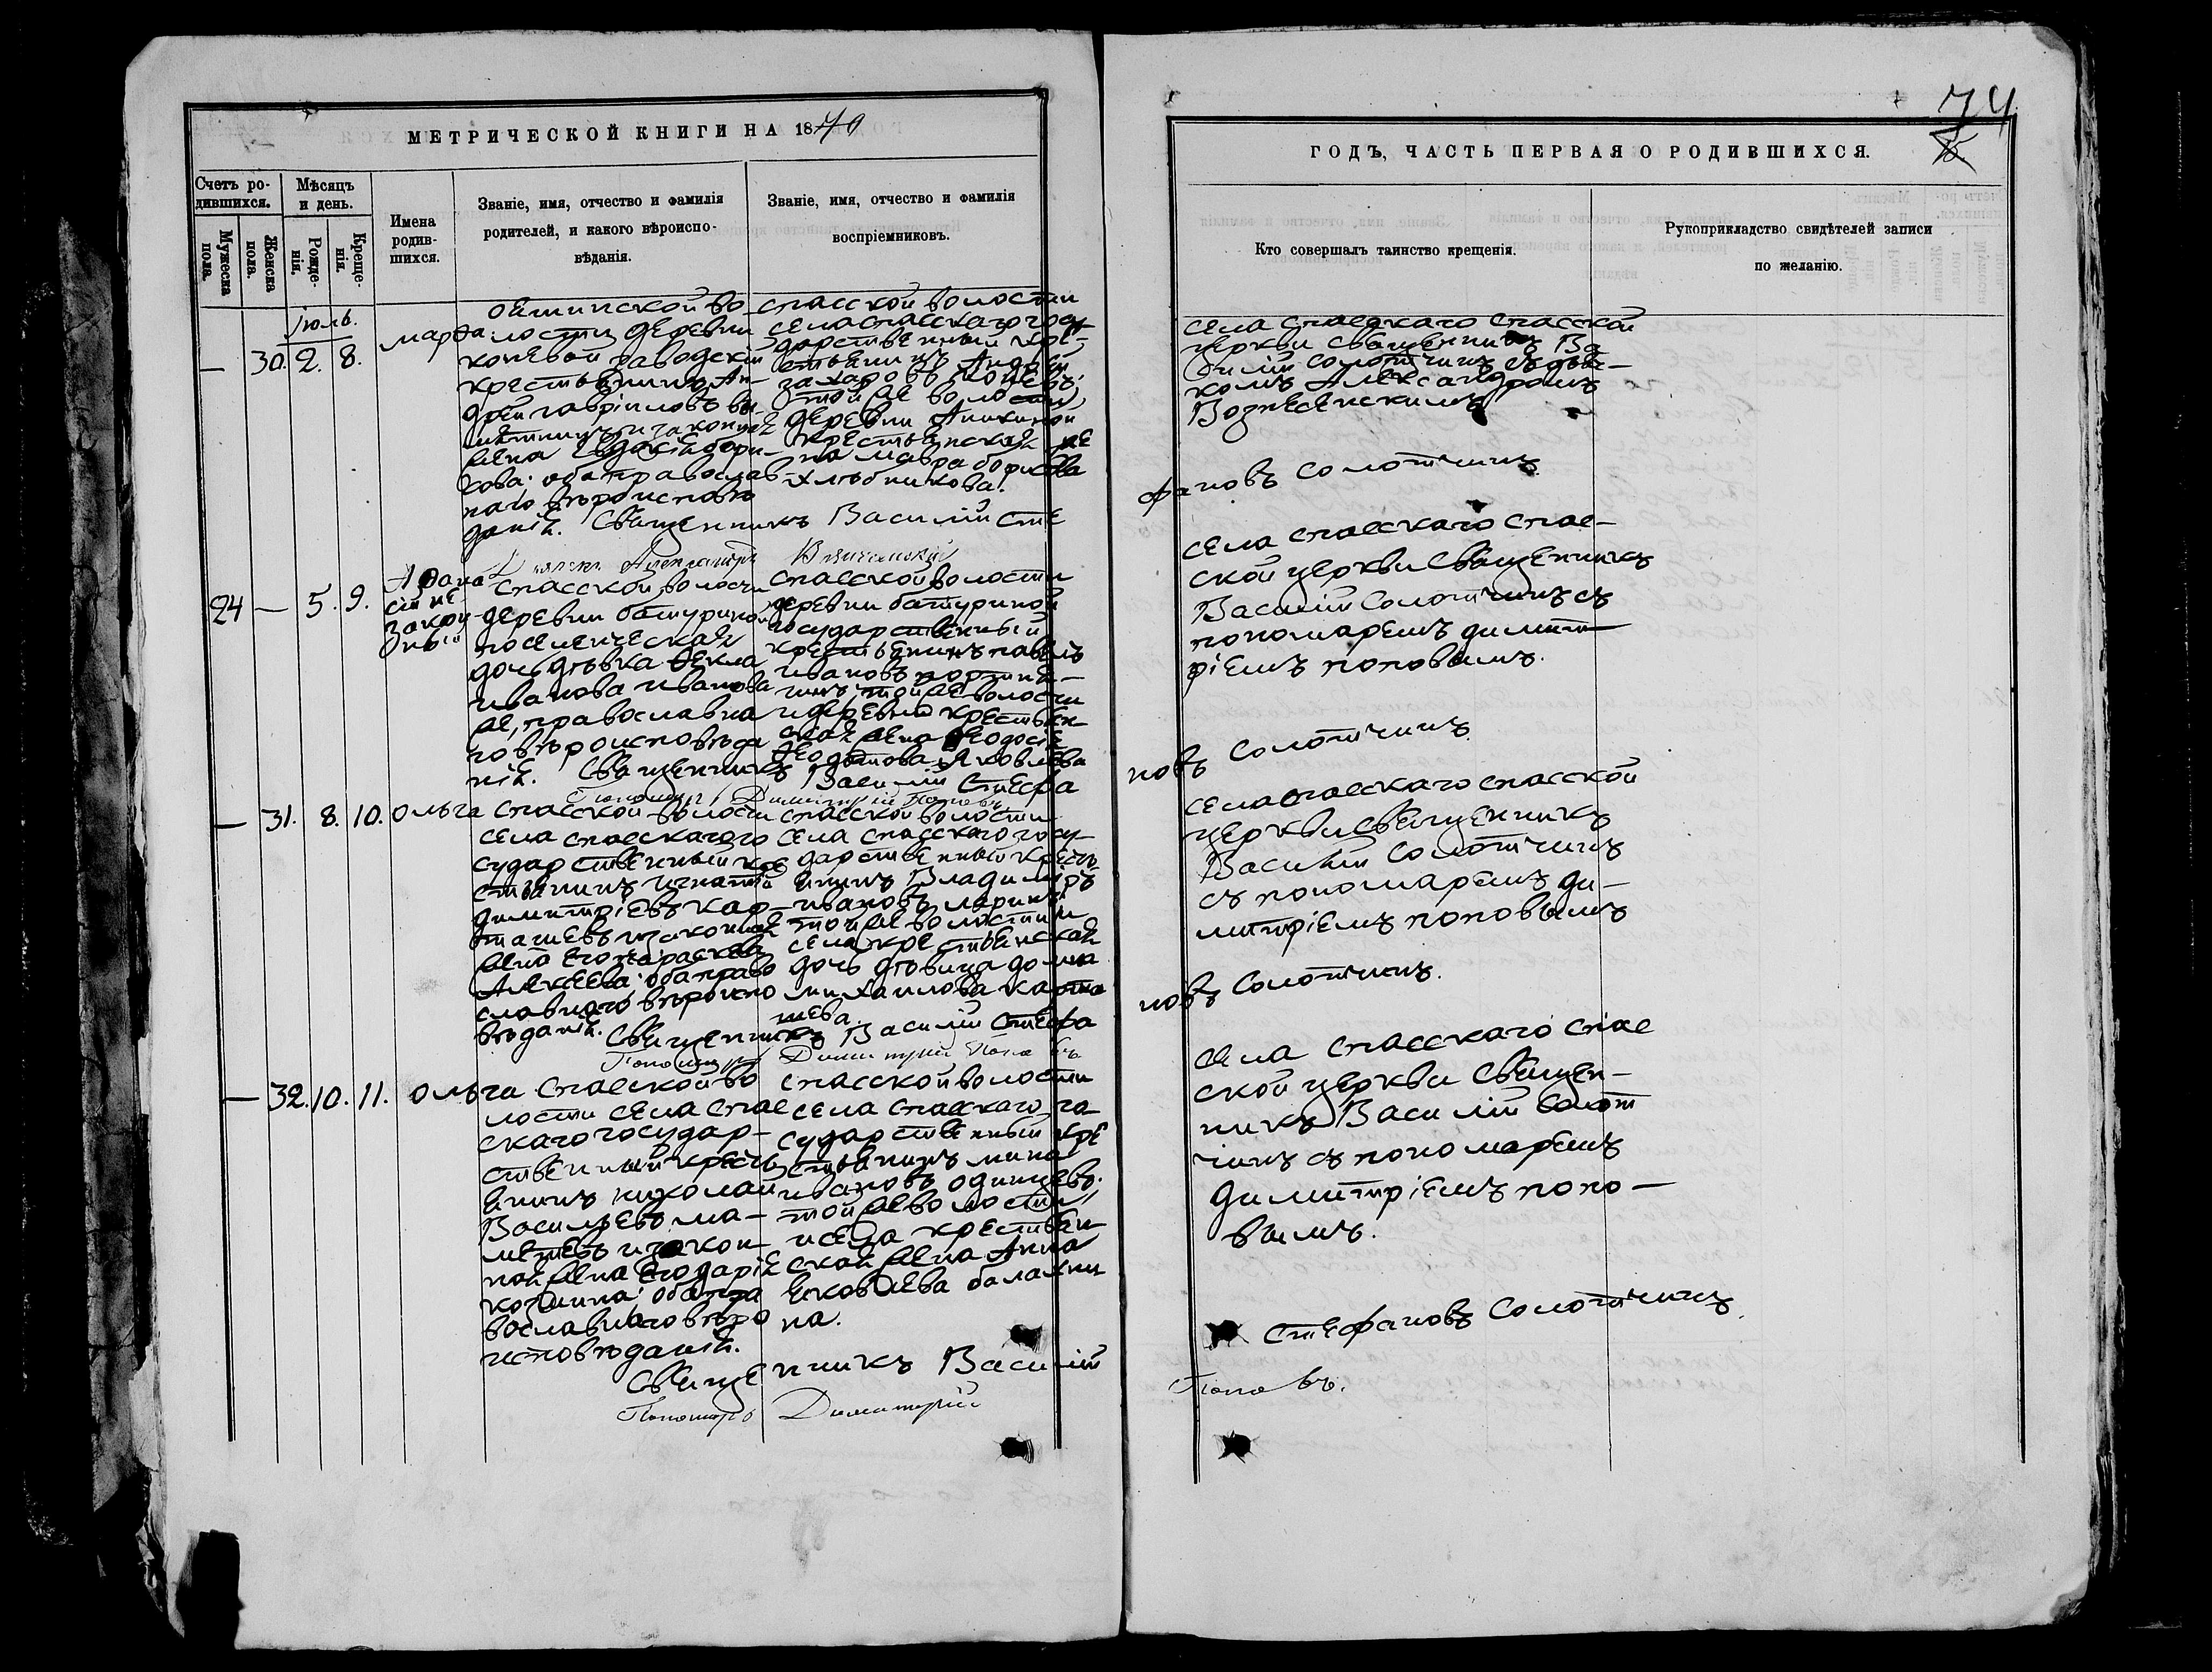 МЕТРИЧЕСКОЙ КНИГИ НА 1870
Счетъ ро-
дившихся.
Мужеска
пола.
Женска
пола.
Мѣсяцъ
и день.
Рожде-
нія.
Креще-
нія.
Имена
родив-
шихся.
Званіе, имя, отчество и фамилія
родителей, и какого вѣроиспо-
вѣданія.
Званіе, имя, отчество и фамилія
воспріемниковъ.
Іюль.
— 30. 2. 8.
марѳа
ояшинской во-
лости деревни
коневой заводскій
крестьянинъ Ан-
дрей гавріиловъ
и законная
жена Евдокія бори-
сова: оба православ
наго вѣроисповѣ
данія.
спасской волости
села спасскаго госу-
дарственный кре-
стьянинъ Андрей
захаровъ
той же волости
деревни Аникиной
крестьянская же
на мавра борисова
хлѣбникова.
Священникъ Василій Сте
Діаконъ Александръ Вознесенскій
24 — 5. 9.
Аѳана
сій не
закон
ный
спасской волости
деревни батуриной
поселенческая
дочь дѣвка Ѳекла
иванова иванова
же, православна
го вѣроисповѣда
нія.
спасской волости
деревни батуриной
государственный
крестьянинъ павелъ
ивановъ
той же волости
и деревни крестьян-
ская жена Ѳеодосія
Ѳеодотова Яковлева
Священникъ Василій Стефа
Пономарь Димитрій Поповъ
— 31. 8. 10.
Ольга
спасской волости
села спасскаго го
сударственный кре
стьянинъ игнатій
димитріевъ кар-
ташевъ и законная
жена его параскева
Алексеева; оба право
славнаго вѣроиспо
вѣданія.
спасской волости
села спасскаго госу-
дарственный кресть
янинъ Владиміръ
ивановъ ларинъ
той же волости и
села крестьянская
дочь дѣвица домна
михаилова карта
шева.
Священникъ Василій Стефа
Пономарь Димитрій Поповъ
— 32. 10. 11.
Ольга
спасской во
лости села спас
скаго государ-
ственный кресть
янинъ николай
Васильевъ ма-
и закон
ная жена его дарія
козмина; оба пра
вославнаго вѣро
исповѣданія.
спасской волости
села спасскаго го
сударственный кре
стьянинъ мина
ивановъ одинцевъ.
той же волости
и села крестьян
ская жена Анна
яковлева балахни
на.
Священникъ Василій
Пономарь Димитрій
74
ГОДЪ, ЧАСТЬ ПЕРВАЯ О РОДИВШИХСЯ.
Кто совершалъ таинство крещенія.
Рукоприкладство свидѣтелей записи
по желанію.
села спасскаго спасской
церкви священникъ Ва
силій солотчинъ съ діа-
кономъ Александромъ
Вознесенскимъ
фановъ солотчинъ
села спасскаго спас-
ской церкви священникъ
Василій Солотчинъ съ
пономаремъ димит-
ріемъ поповымъ.
новъ солотчинъ
села спасскаго спасской
церкви священникъ
Василій Солотчинъ
съ пономаремъ ди-
митріемъ поповымъ
новъ солотчинъ.
села спасскаго спас
ской церкви священ-
никъ Василій Солот
чинъ съ пономаремъ
димитріемъ попо-
вымъ.
Стефановъ Солотчинъ.
Поповъ.